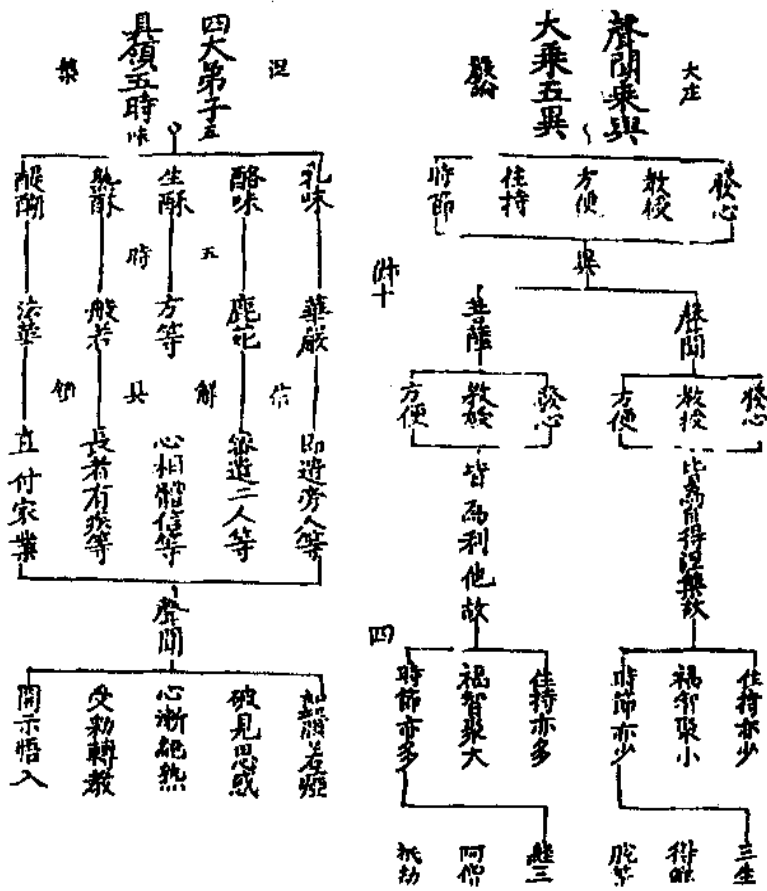 大庄
嚴論
聲聞乘與
大乘五異
發心
教授
方便
住持
時節
異
聲聞
發心
教授
方便
皆為自得涅槃故
住持亦少
福智聚小
時節亦少
三生
得
脫
菩薩
發心
教授
方便
皆為利他故
住持亦多
福智聚大
時節亦多
經三
阿僧
祇劫
十
四
涅
槃
四大弟子五
具領五時味
乳味
酪味
生酥
熟酥
醍醐
五
時
華嚴
鹿苑
方等
般若
法華
信
解
具
領
即遣旁人等
密遣二人等
心相體信等
長者有疾等
直付家業
聲聞
如聾若啞
破見思惑
心漸純熟
受勑轉教
開示悟入